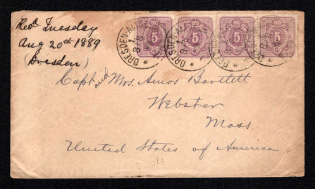 Recd Tuesday
Aug 20th 1889
(Dresden)
5 5 5 5
DRESDEN
Capt & Mrs. Amos Bartlett
Webster
Mass.
United States of America